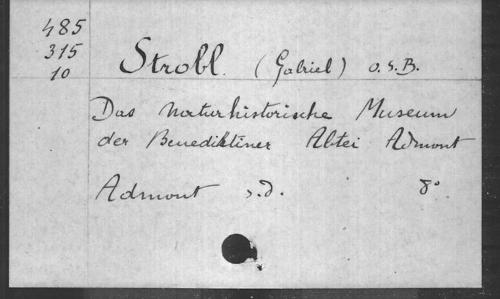 485
315
10
Strobl. (Gabriel) O.S.B.
Das naturhistorische Museum
der Benediktiner Abtei Admont
Admont s.d. 8°